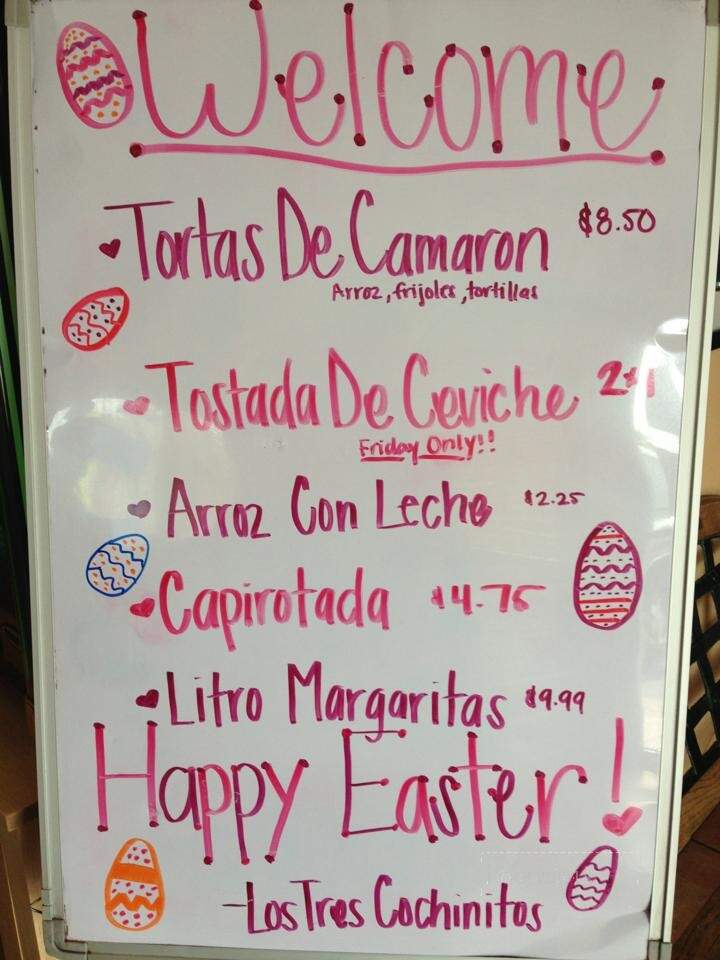 Welcome
Tortas De Camaron $8.50
Arroz, frijoles, tortillas
Tostada De Ceviche 2x1
Friday Only!!
Arroz Con Leche $2.25
Capirotada $4.75
Litro Margaritas $9.99
Happy Easter!
-Los Tres Cochinitos